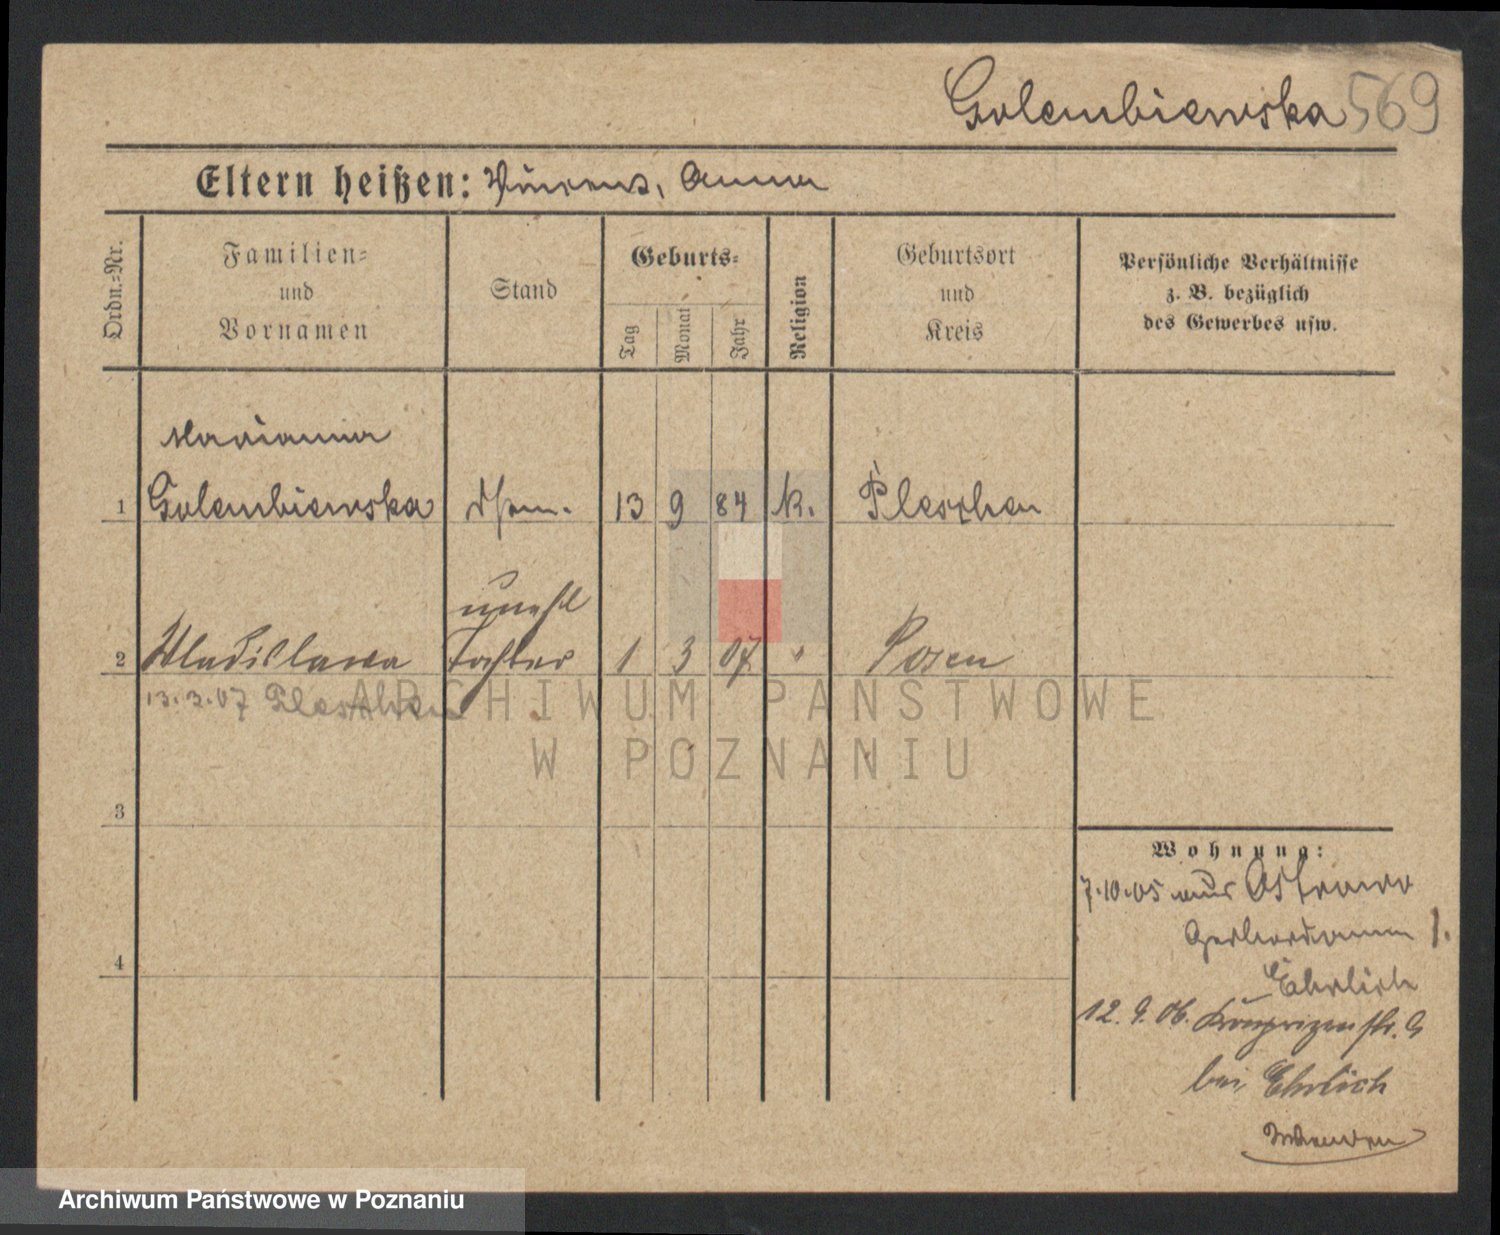 Golembiewska 569
Eltern heißen: Vincens, Anna
Ordn.=Nr.
Familien=
und
Vornamen
Stand
Geburts=
Tag
Monat
Jahr
Religion
Geburtsort
und
Kreis
Persönliche Verhältnisse
z. B. bezüglich
des Gewerbes usw.
Marianna
1 Golembiewska 13 9 84 k. Pleschen
unehl
2 Wladislawa Tochter 1 3 07 " Posen
13.3.07 Pleschen
ARCHIWUM PAŃSTWOWE
W POZNANIU
3
Wohnung:
7.10.05 aus Ostrowo
1.
4
Ehrlich
12.9.06. Kronprinzenstr.
bei Ehrlich
Archiwum Państwowe w Poznaniu